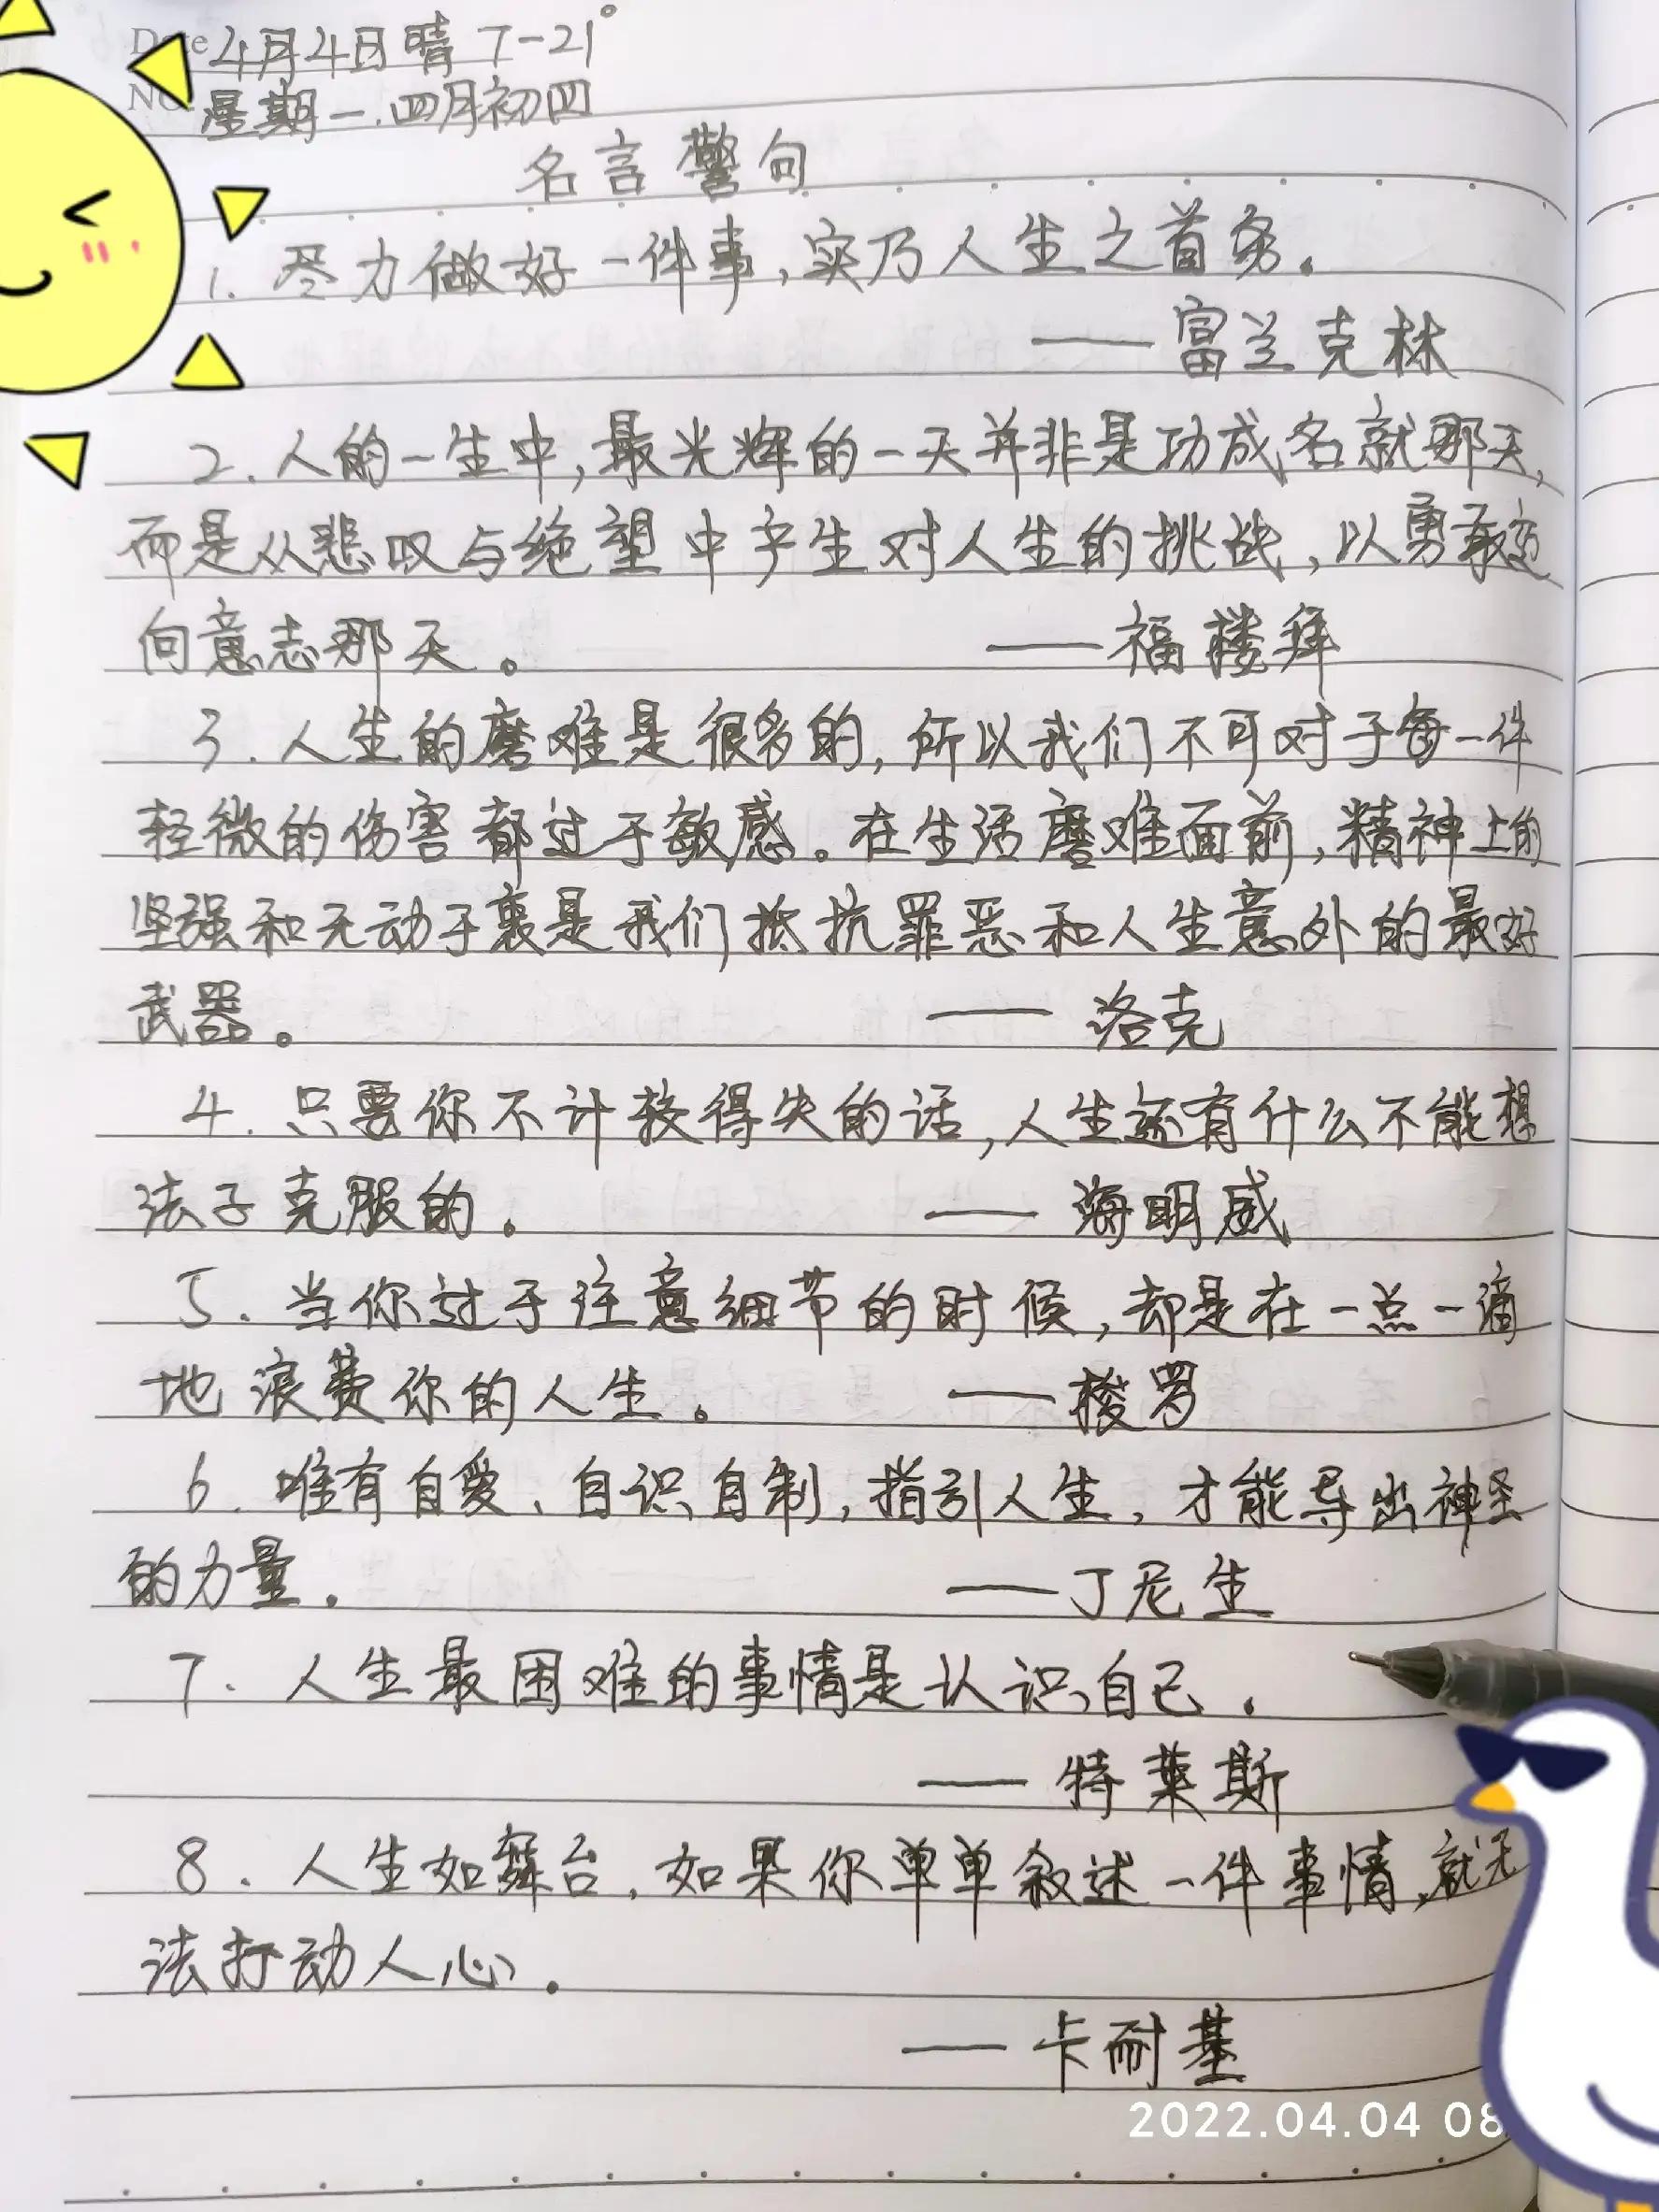 Date 4月4日晴 7-21°
NO 星期一.四月初四
名言警句
1. 尽力做好一件事,实乃人生之首务。
——富兰克林
2.人的一生中,最光辉的一天并非是功成名就那天,
而是从悲叹与绝望中产生对人生的挑战,以勇敢迈
向意志那天。 ——福楼拜
3.人生的磨难是很多的,所以我们不可对于每一件
轻微的伤害都过于敏感。在生活磨难面前,精神上的
坚强和无动于衷是我们抵抗罪恶和人生意外的最好
武器。 ——洛克
4.只要你不计较得失的话,人生还有什么不能想
法子克服的。 ——海明威
5.当你过于注意细节的时候,却是在一点一滴
地浪费你的人生。 ——梭罗
6.唯有自爱、自识自制,指引人生,才能导出神圣
的力量. ——丁尼生
7.人生最困难的事情是认识自己.
——特莱斯
8.人生如舞台,如果你单单叙述一件事情,就无
法打动人心.
——卡耐基
2022.04.04 08